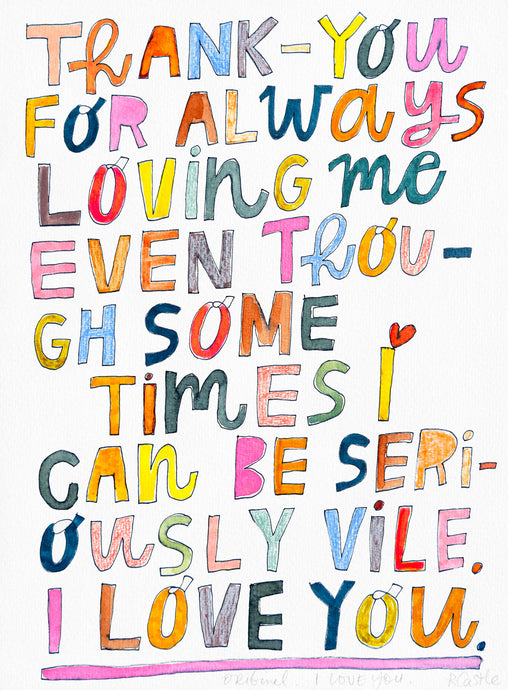 THANK-YOU
FOR ALWAYS
LOVING me
EVEN THOU-
GH SOME
TIMES I
CAN BE SERI-
OUSLY VILE.
I LOVE YOU.
ORIGINAL. I LOVE YOU. RCastle